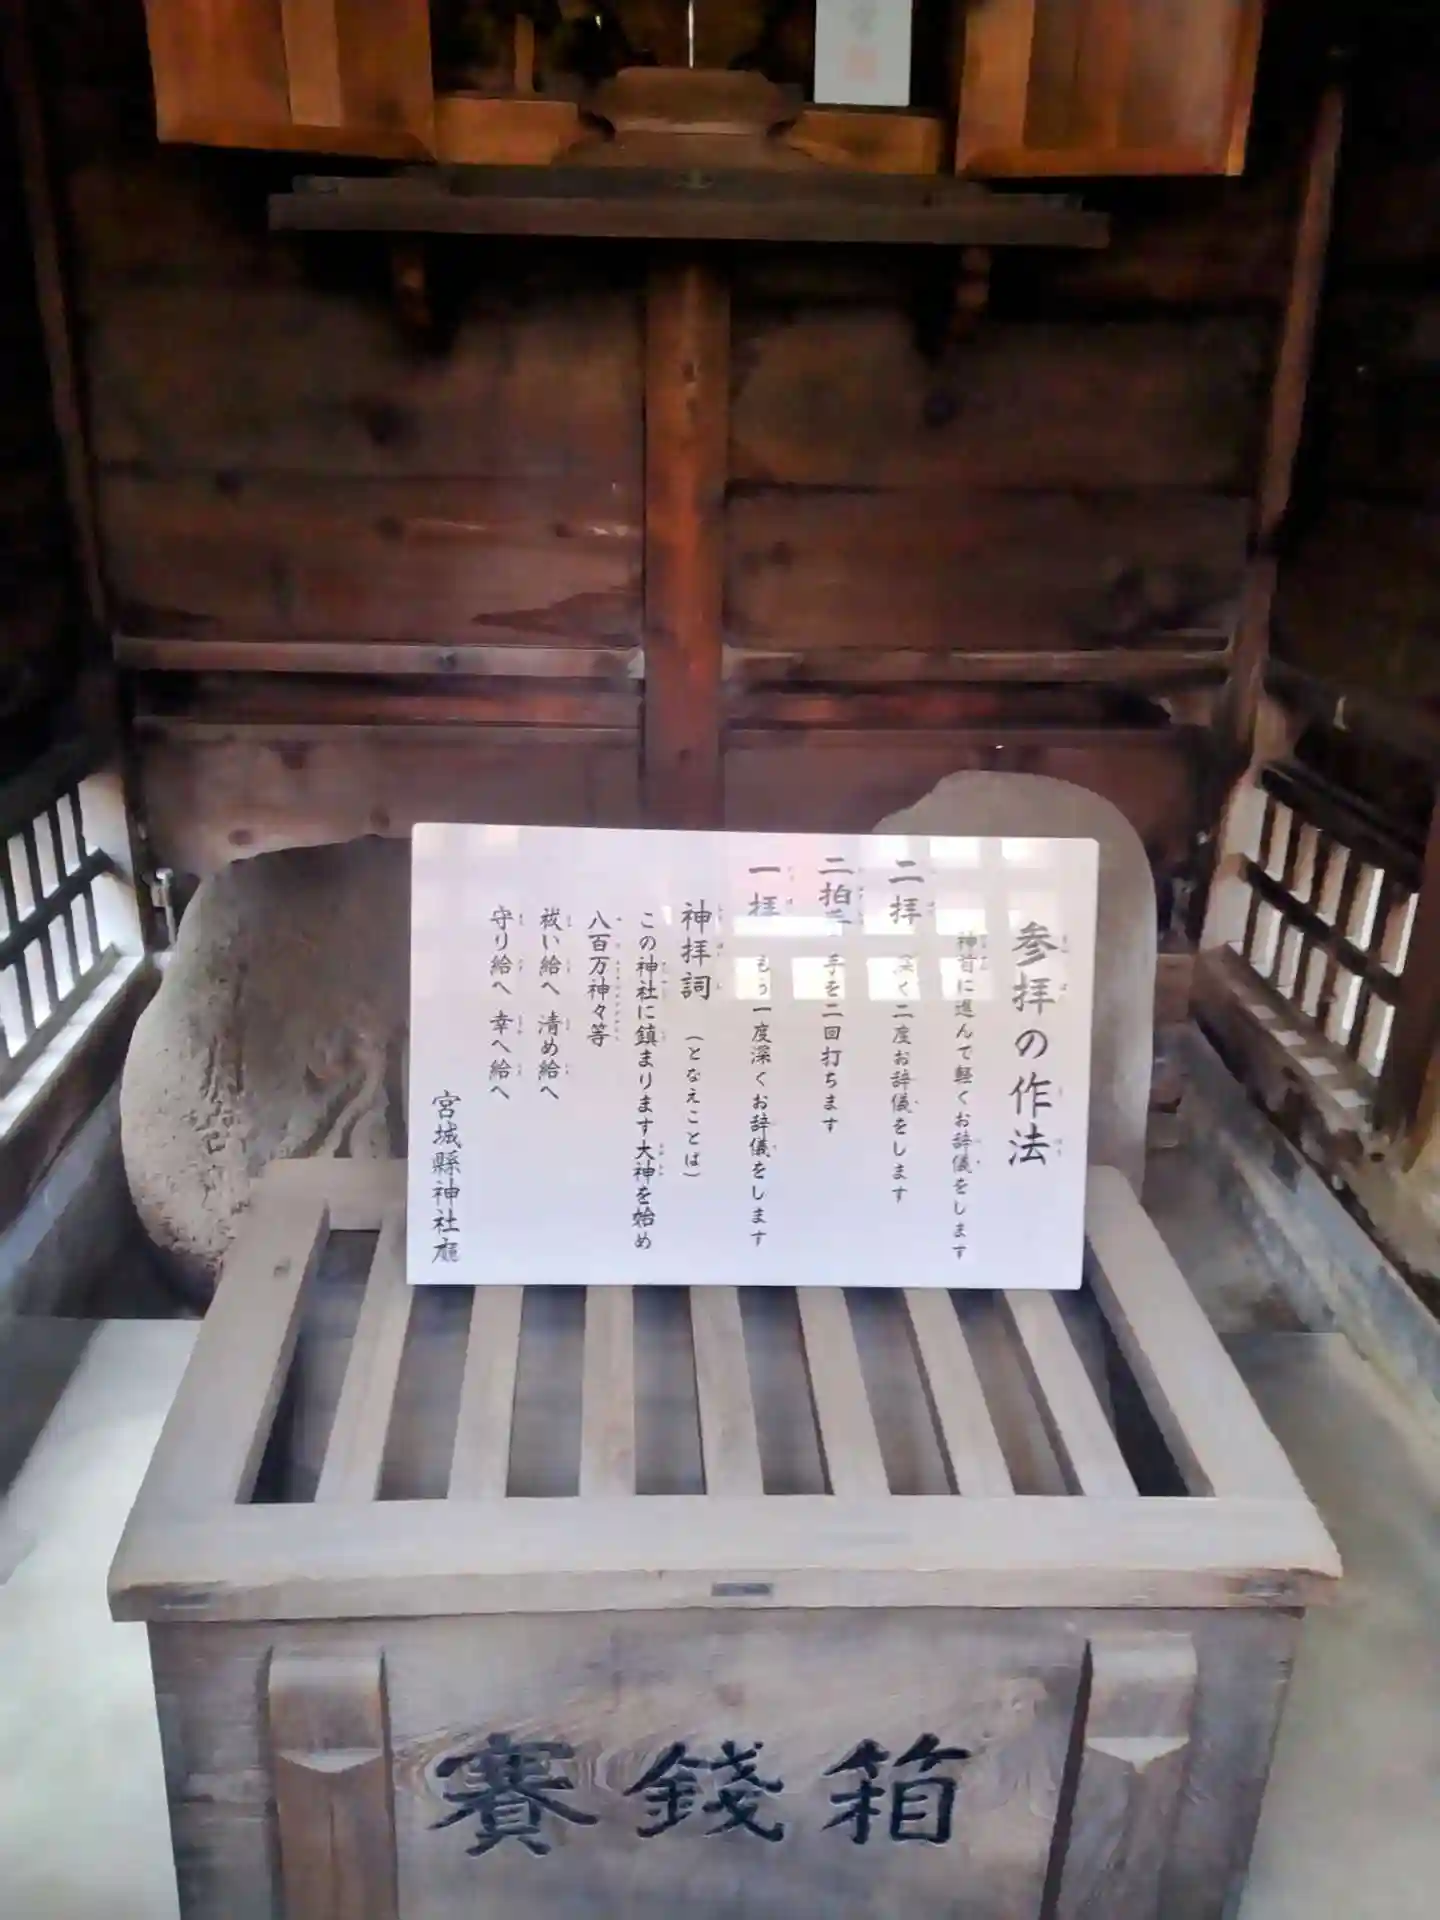 参拝の作法
神前に進んで軽くお辞儀をします
二拝 深く二度お辞儀をします
二拍手 手を二回打ちます
一拝 もう一度深くお辞儀をします
神拝詞 (となえことば)
この神社に鎮まります大神を始め
八百万神々等
祓い給へ 清め給へ
守り給へ 幸へ給へ
宮城縣神社廳
賽錢箱